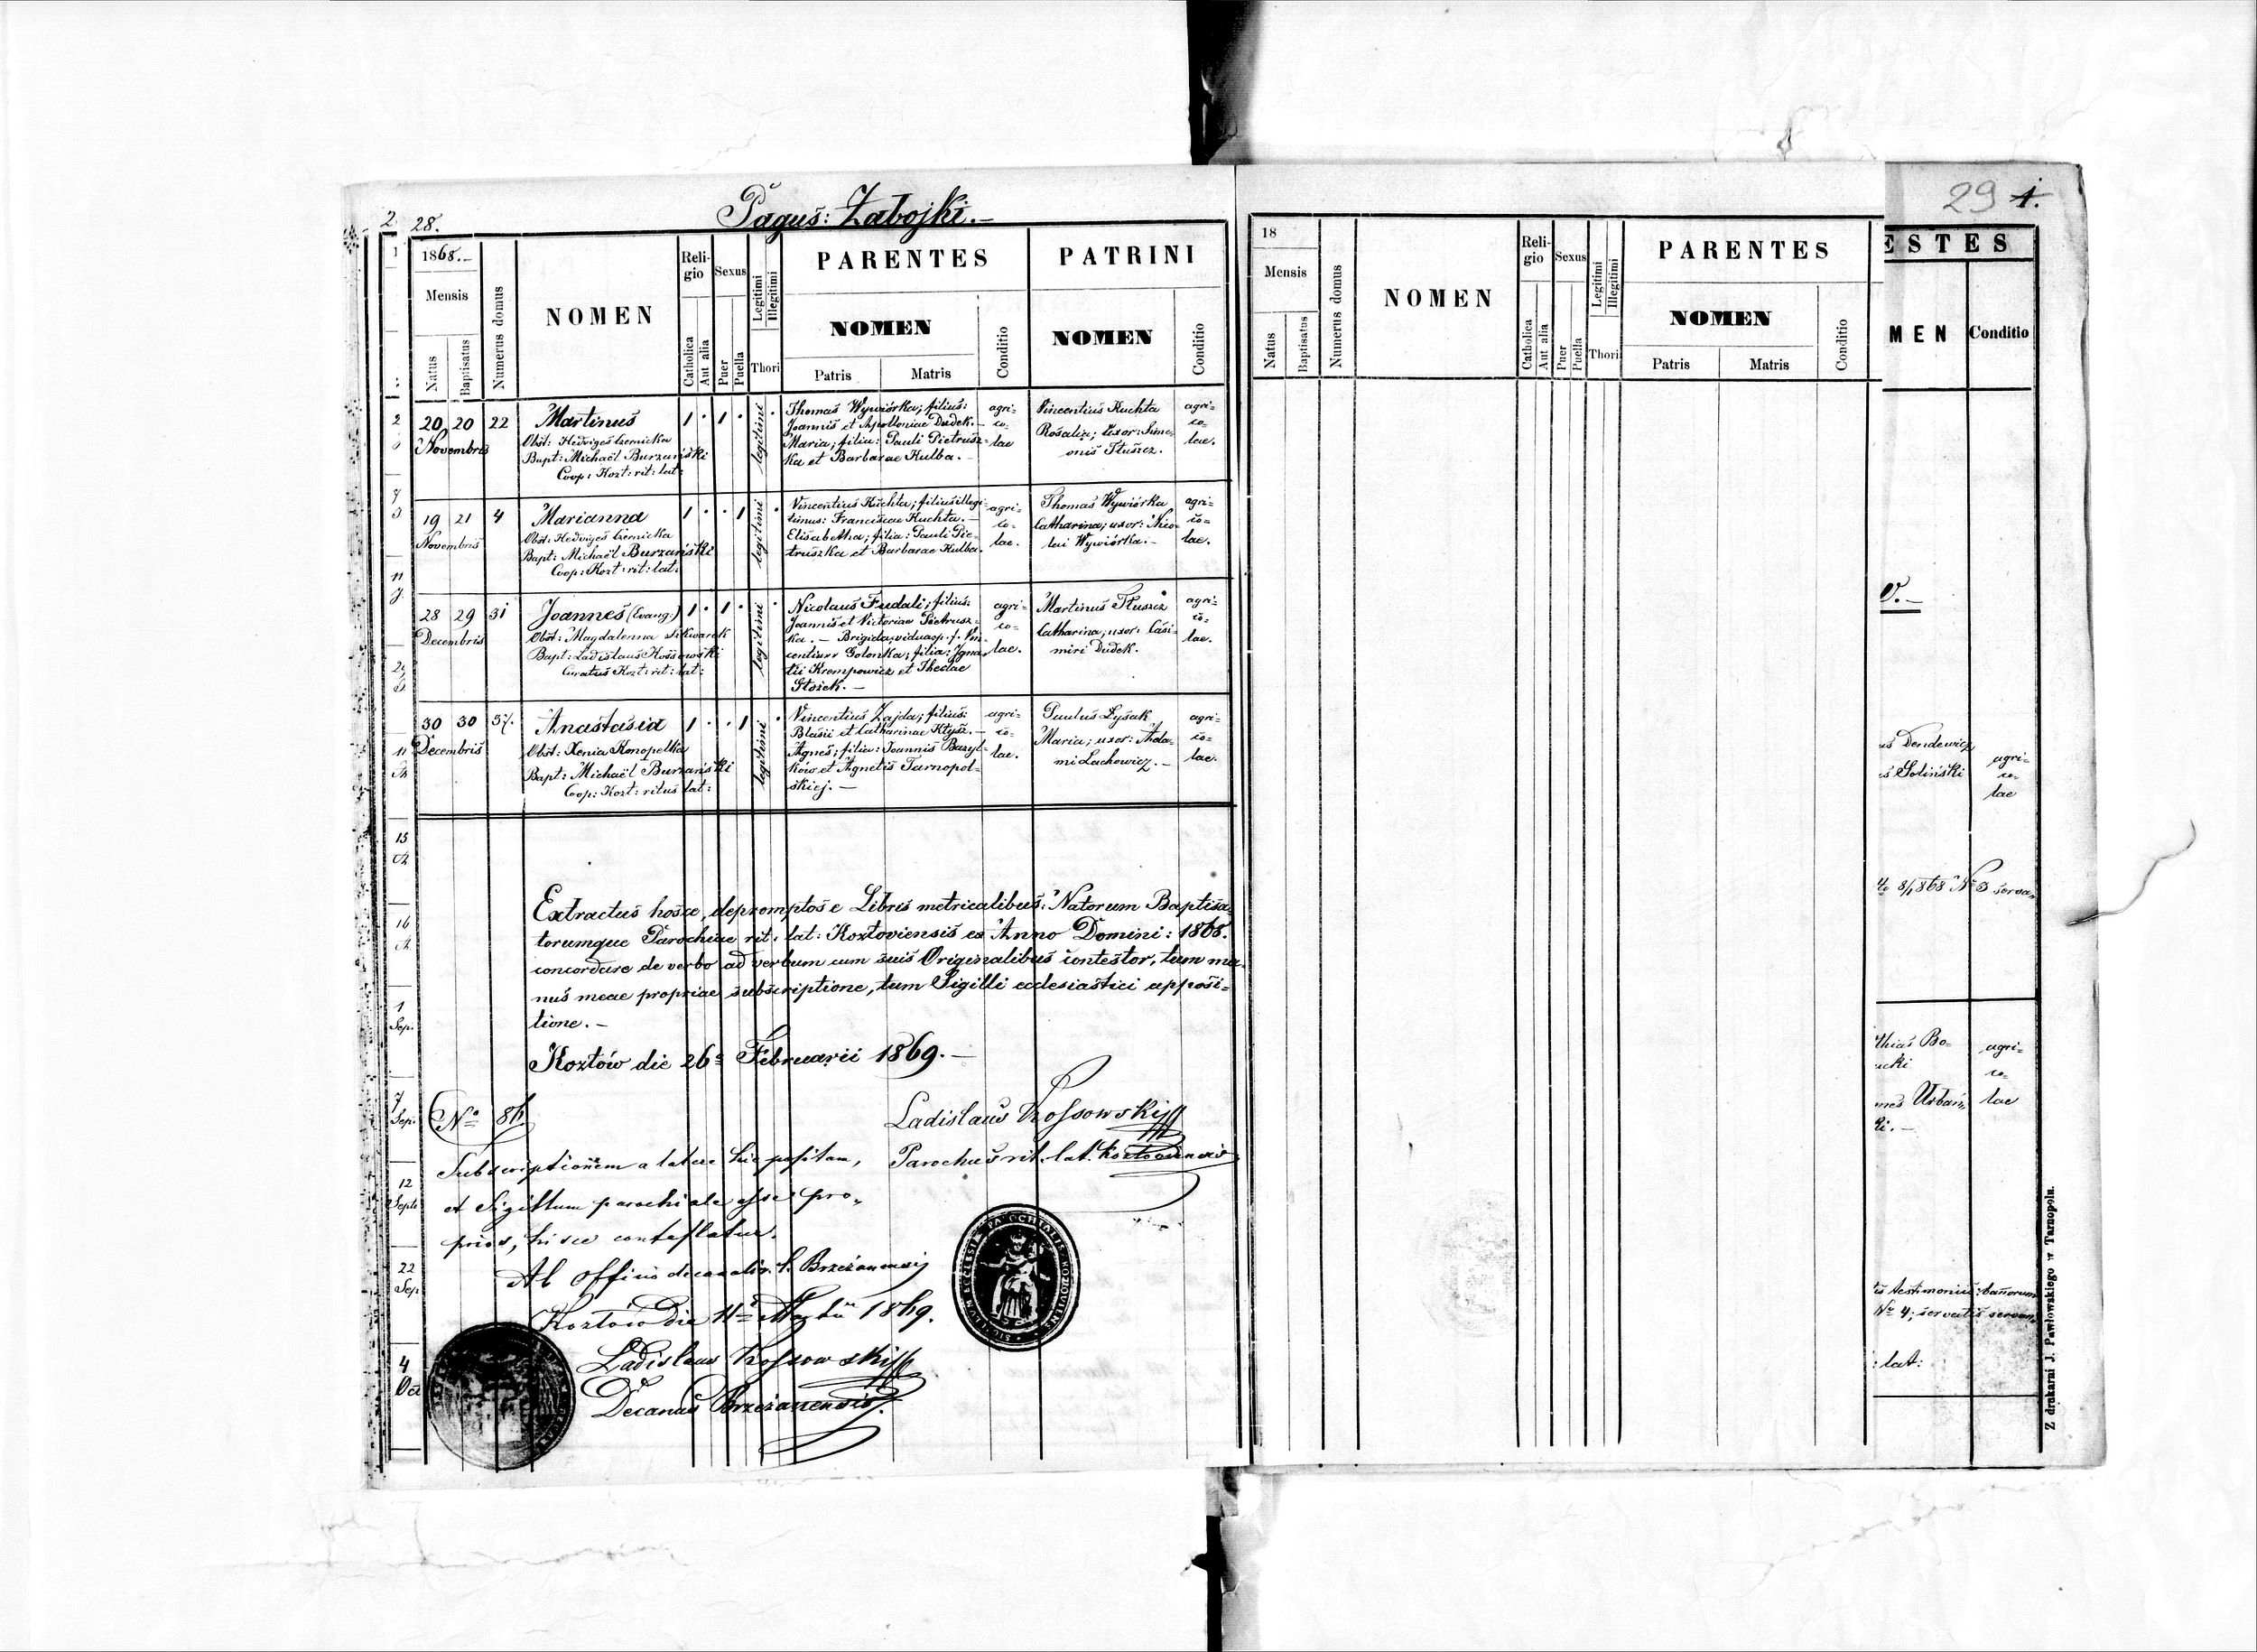 2. 28.
Paguš: Zabojki.—
1868.—
Mensis
Natus
Baptisatus
Numerus domus
NOMEN
Religio
Catholica
Aut alia
Sexus
Puer
Puella
Legitimi
Illegitimi
Thori
PARENTES
NOMEN
Patris
Matris
Conditio
PATRINI
NOMEN
Conditio
20 20 22
Novembris
Martinuš
Obšt: Hedvigeš Czernicka
Bapt: Michaël Burzański
Coop: Kozł: rit: lat:
1 · 1 · legitimi ·
Thomaš Wywiórka; filiuš:
Joanniš et Apolloniae Dudek.—
Maria; filia: Pauli Pietrusz-
ka et Barbarae Kulba.—
agri=
co=
lae
Vincentiuš Kuchta
Rošalia; uxor: Sime-
oniš Tłušcz.
agri=
co=
lae.
19 21 4
Novembriš
Marianna
Obšt: Hedvigeš Czernicka
Bapt: Michaël Burzański
Coop: Kozł: rit: lat:
1 · · 1 legitimi ·
Vincentiuš Kuchta; filiuš illegi-
timus: Franciscae Kuchta.—
Elisabetha; filia: Pauli Pie-
truszka et Barbarae Kulba.
agri=
co=
lae.
Thomaš Wywiórka
Catharina; uxor: Nico-
lai Wywiórka.—
agri=
co=
lae.
28 29 31
Decembris
Joanneš (Evang:)
Obšt: Magdalenna
Bapt: Ladislauš Koššowški
Curatuš Kozł: rit: lat:
1 · 1 · legitimi ·
Nicolauš Fudali; filiuš:
Joanniš et Victoriae Pietrusz-
ka.— Brigida; vidua p. f. Vin-
centium Golonka; filia: Igna-
tii Krempowicz et Theclae
Głošek.—
agri=
co=
lae.
Martinuš Tłuszcz
Catharina; uxor: Caši-
miri Dudek.
agri=
co=
lae.
30 30 37.
Decembriš
Anaštašia
Obšt: Xenia Konopelka
Bapt: Michaël Burzański
Coop: Kozł: rituš lat:
1 · · 1 legitimi ·
Vincentiuš Zajda; filiuš:
Blasii et Catharinae Kłyšz.—
Agneš; filia: Joanniš Bazyl-
ków et Agnetiš Tarnopol-
skiej.—
agri=
co=
lae.
Pauluš Łyšak
Maria; uxor: Ada-
mi Lachowicz.—
agri=
co=
lae.
Extractuš hošce, depromptoš e Libriš metricalibuš: Natorum Baptisa-
torumque Parochiae rit: lat: Kozłoviensiš ex Anno Domini: 1868.
concordare de verbo ad verbum cum šuiš Originalibuš conteštor, tum ma-
nuš meae propriae šubšcriptione, tum Sigilli ecclesiaštici appoši=
tione.—
Kozłów die 26ª Februarii 1869.—
No 86
Ladislaus Kossowski
Parochus rit. lat. Kozłoviensis
Subscriptionem a latere hic positam,
et Sigillum parochiale esse pro-
prios, hisce contestatur.
Ab Officio decanali r. l. Brzeżanensi
Kozłów die 11ª Martii 1869.
Ladislaus Kossowski
Decanus Brzeżanensis.
18
Mensis
Natus
Baptisatus
Numerus domus
NOMEN
Religio
Catholica
Aut alia
Sexus
Puer
Puella
Legitimi
Illegitimi
Thori
PARENTES
NOMEN
Patris
Matris
Conditio
29 1.
ESTES
MEN
Conditio
v.—
uš Dendewicz
š Soliński
agri=
co=
lae
8/1868 No 3 serva-
thiaš Bo-
ucki
neš Urbań-
ki.—
agri=
co=
lae
testimoniiš bannorum
No 4; servatiš servan-
: lat:
Z drukarni J. Pawłowskiego w Tarnopolu.